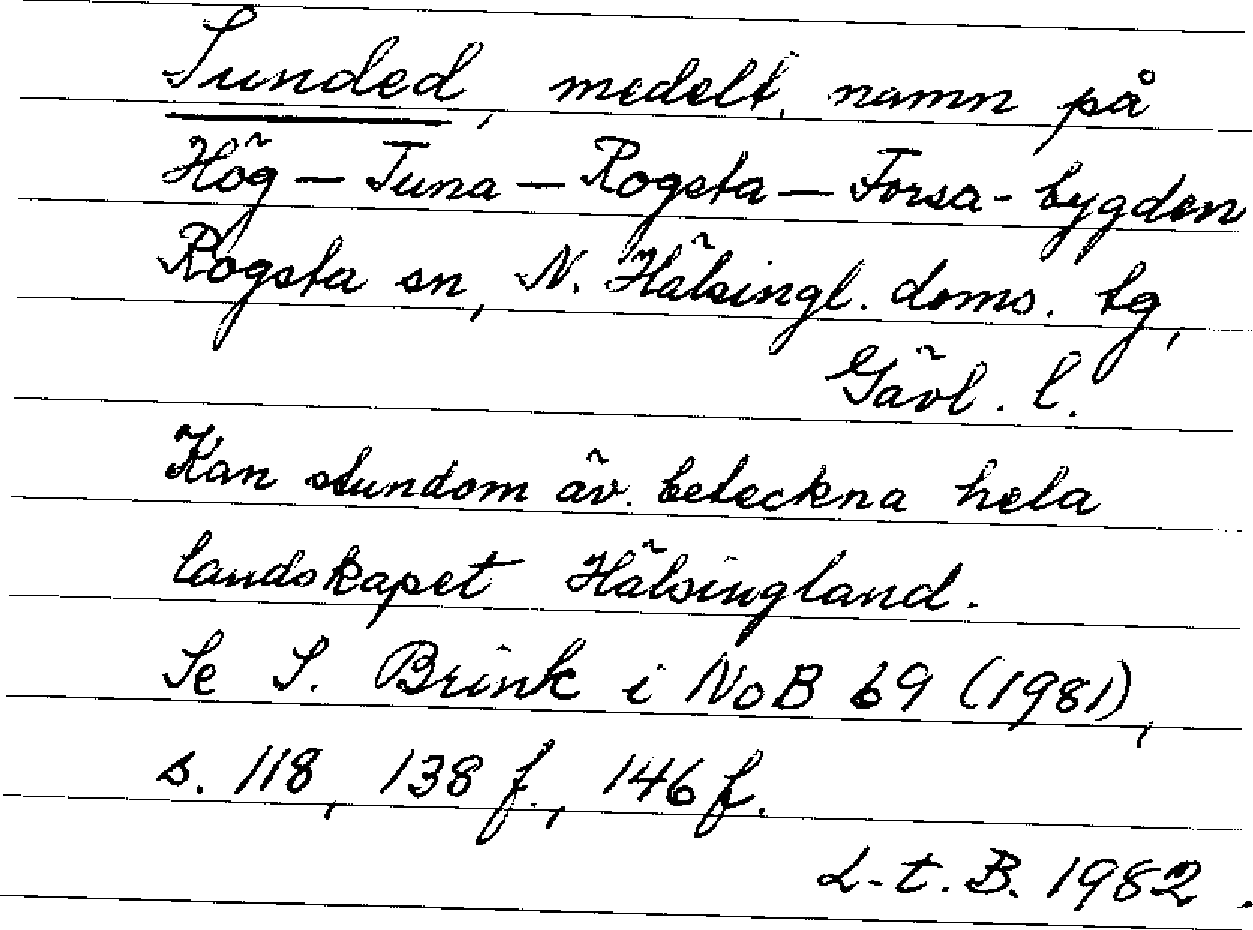 Sunded, medelt. namn på
Hög – Tuna – Rogsta – Forsa-bygden
Rogsta sn, N. Hälsingl. doms. tg,
Gävl. l.
Kan stundom äv. beteckna hela
landskapet Hälsingland.
Se S. Brink i NoB 69 (1981),
s. 118, 138 f., 146 f.
L-t. B. 1982.